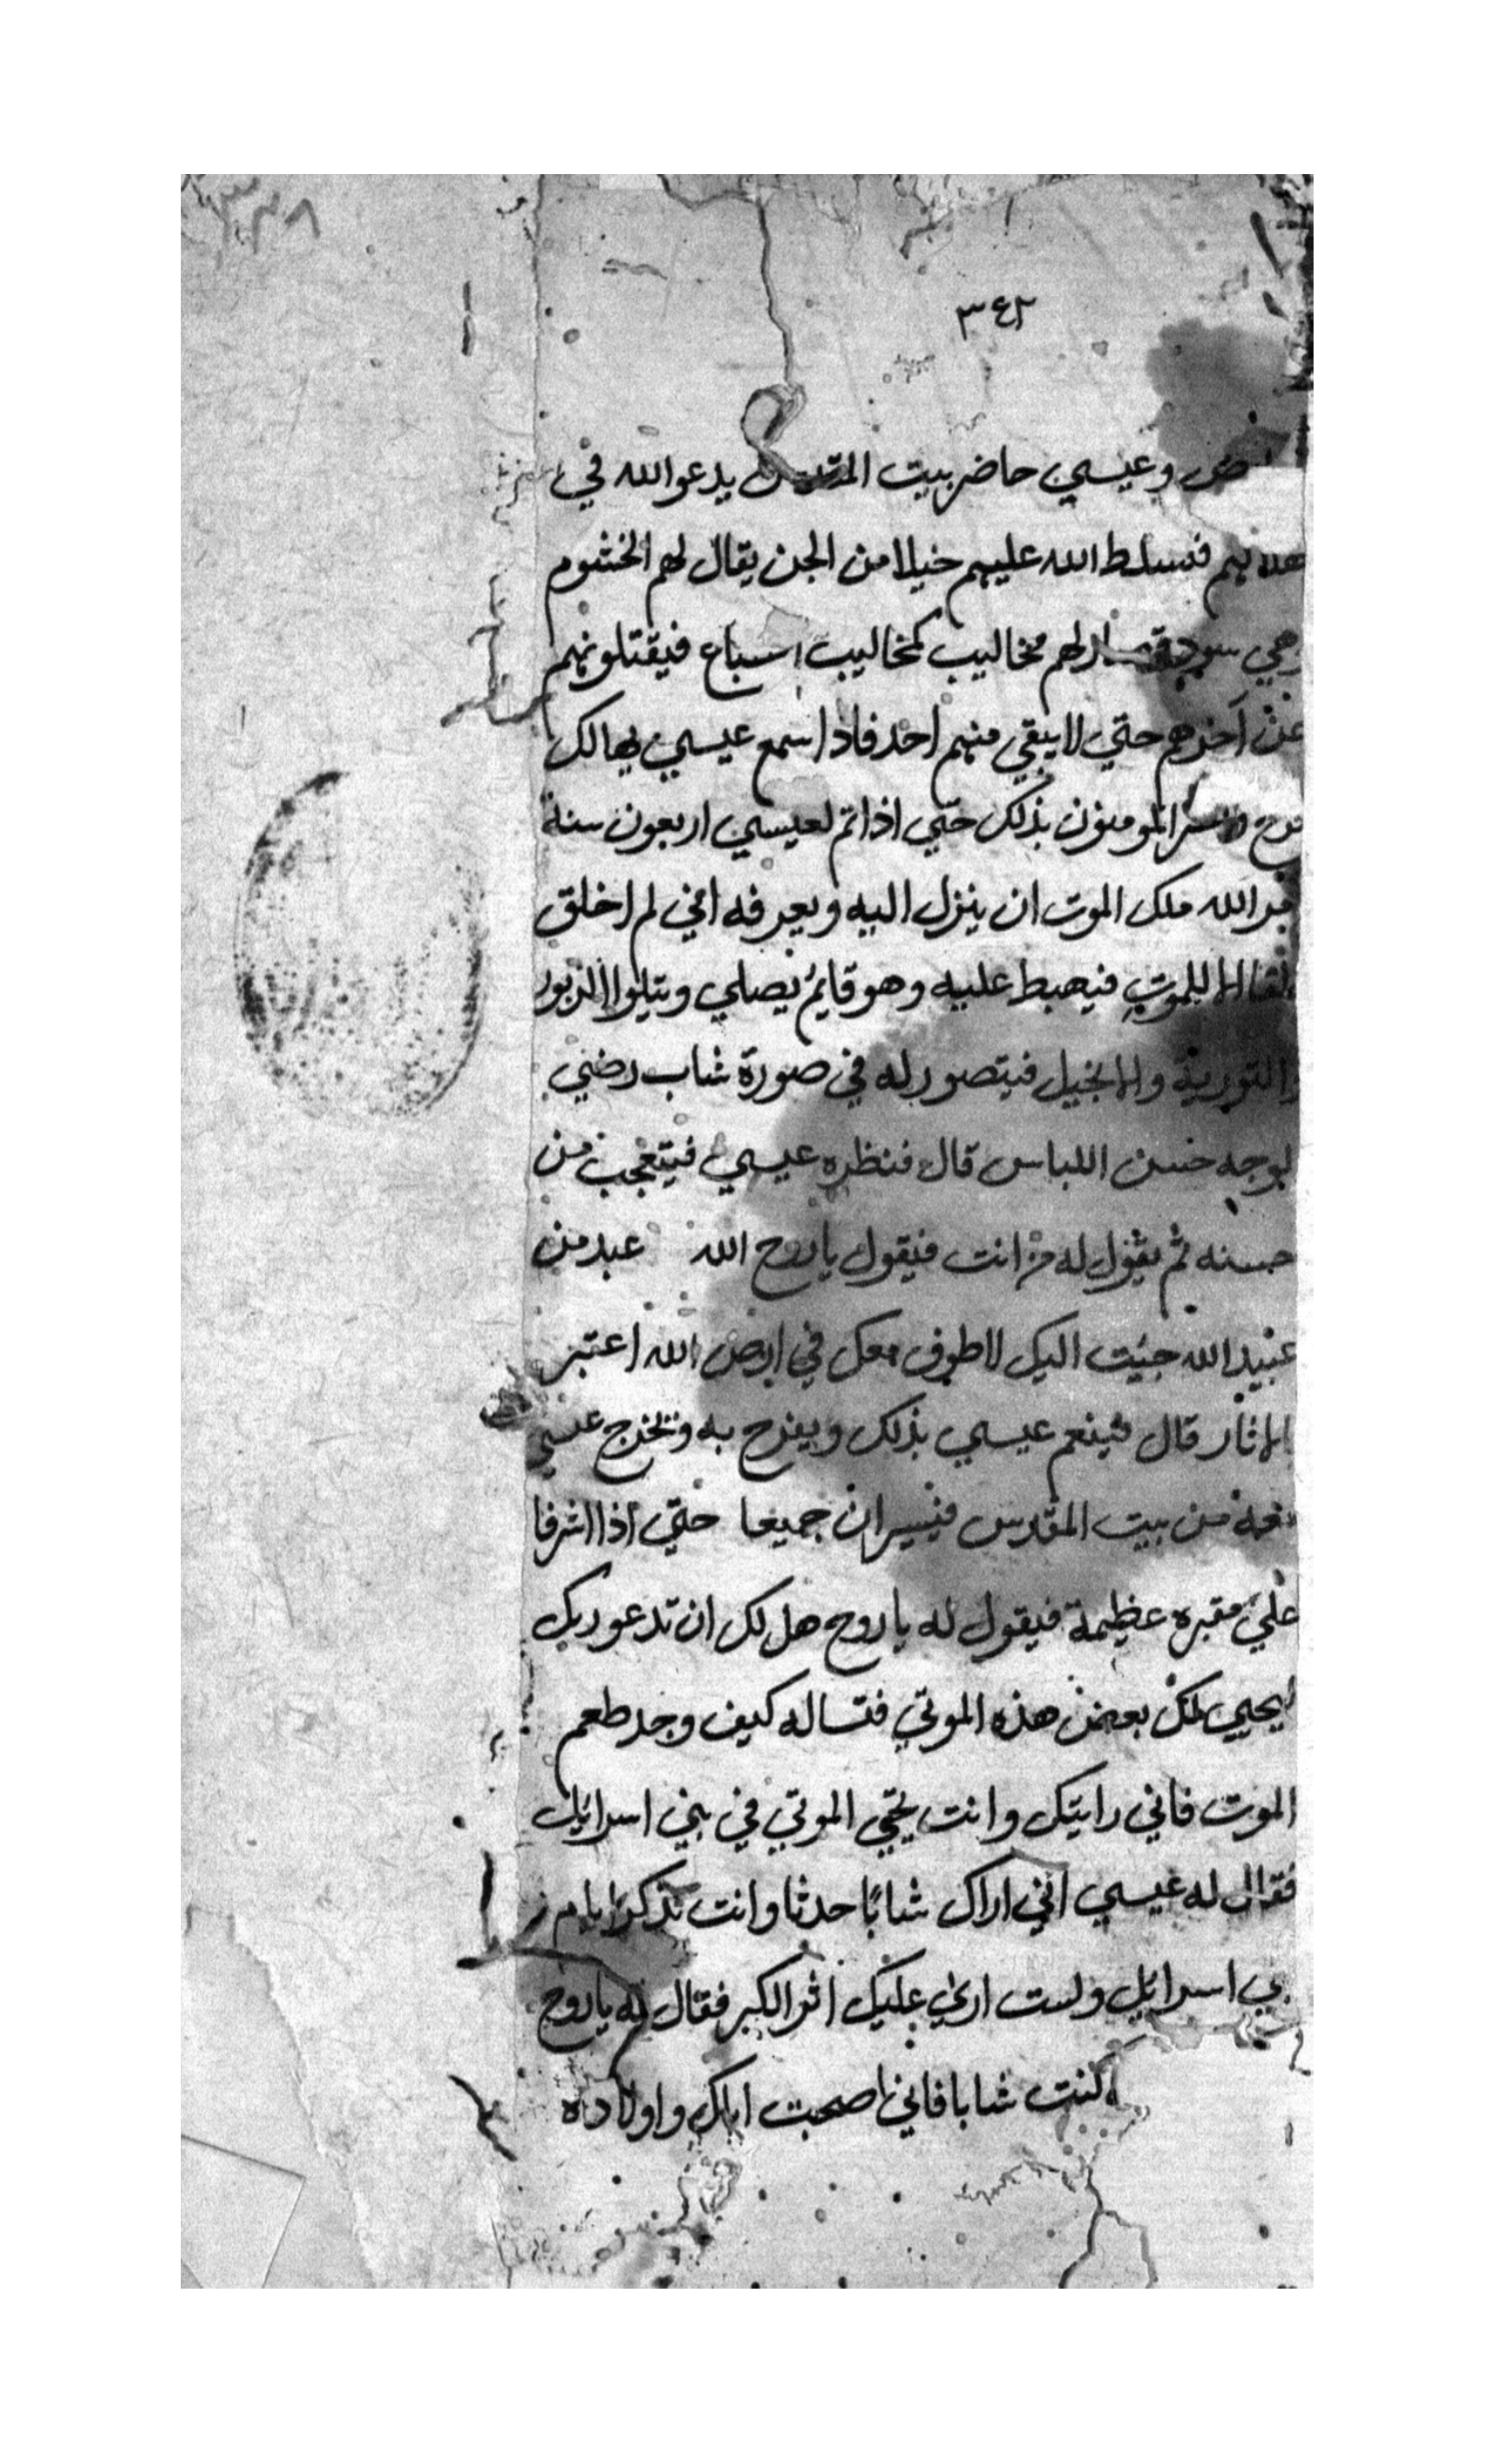 ٣٤٢
وعيسي حاضر بيت المقدس يدعوا الله في
فسلط الله عليهم خيلا من الجن يقال لهم الخشوم
وهي لهم مخاليب كمخاليب السباع فيقتلونهم
عن آخرهم حتي لا يبقي منهم احد فاذا سمع عيسي
المومنون بذلك حتي اذا تم لعيسي اربعون سنة
الله ملك الموت ان ينزل اليه ويعرفه اني لم اخلق
الا للموت فيهبط عليه وهو قايم يصلي ويتلوا الزبور
والتورية والانجيل فيتصور له في صورة شاب رضي
الوجه حسن اللباس قال فنظره عيسي فيتعجب من
حسنه ثم يقول له من انت فيقول يا روح الله عبد من
عبيد الله جيت اليك لاطوف معك في ارض الله اعتبر
الاثار قال فينعم عيسي بذلك ويفرح به وتخرج عيسي
معه من بيت المقدس فيسيران جميعا حتي اذا اشرفا
علي مقبره عظيمة فيقول له يا روح هل لك ان تدعو ربك
يحيي لك بعض هذه الموتي فتساله كيف وجد طعم
الموت فاني رايتك وانت تحيي الموتي في بني اسرايل
فقال له عيسي اني اراك شابا حدثا وانت تذكر ايام
بني اسرايل ولست اري عليك اثر الكبر فقال له يا روح
كنت شابا فاني صحبت اباك واولاده